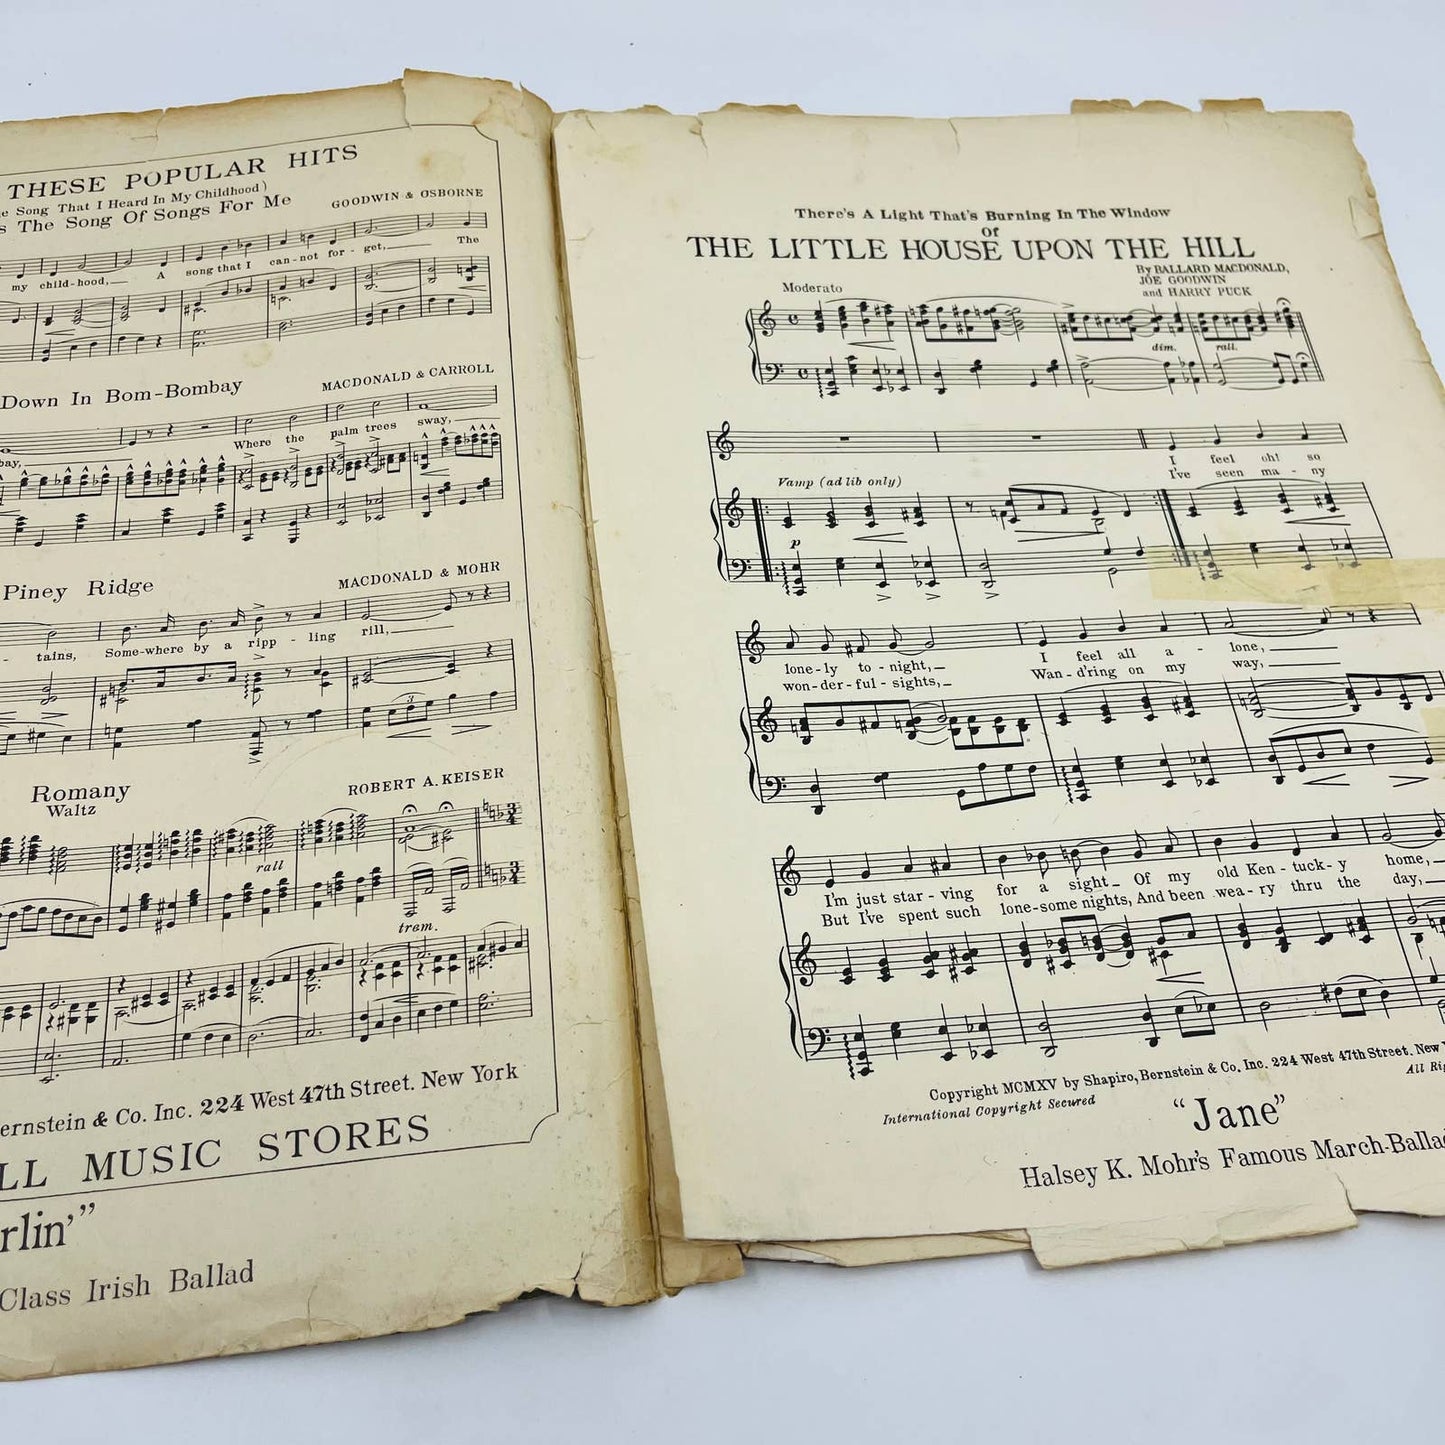 THESE POPULAR HITS
Song That I Heard In My Childhood)
The Song Of Songs For Me
GOODWIN & OSBORNE
my child-hood, A song that I can-not for-get, The
Down In Bom-Bombay
MACDONALD & CARROLL
bay, Where the palm trees sway,
Piney Ridge
MACDONALD & MOHR
- tains, Some-where by a ripp - ling rill,
3
Romany
Waltz
ROBERT A. KEISER
rall
trem.
ernstein & Co. Inc. 224 West 47th Street. New York
LL MUSIC STORES
rlin'”
Class Irish Ballad
There's A Light That's Burning In The Window
Of
THE LITTLE HOUSE UPON THE HILL
By BALLARD MACDONALD,
JOE GOODWIN
and HARRY PUCK
Moderato
dim. rall.
I feel oh! so
I've seen ma - ny
Vamp (ad lib only)
p
lone-ly to-night, I feel all a - lone,
won-der-ful-sights, Wan-d'ring on my way,
I'm just star-ving for a sight Of my old Ken-tuck-y home,
But I've spent such lone-some nights, And been wea-ry thru the day,
Copyright MCMXV by Shapiro, Bernstein & Co. Inc. 224 West 47th Street. New
International Copyright Secured All Rig
“Jane”
Halsey K. Mohr's Famous March-Ballad